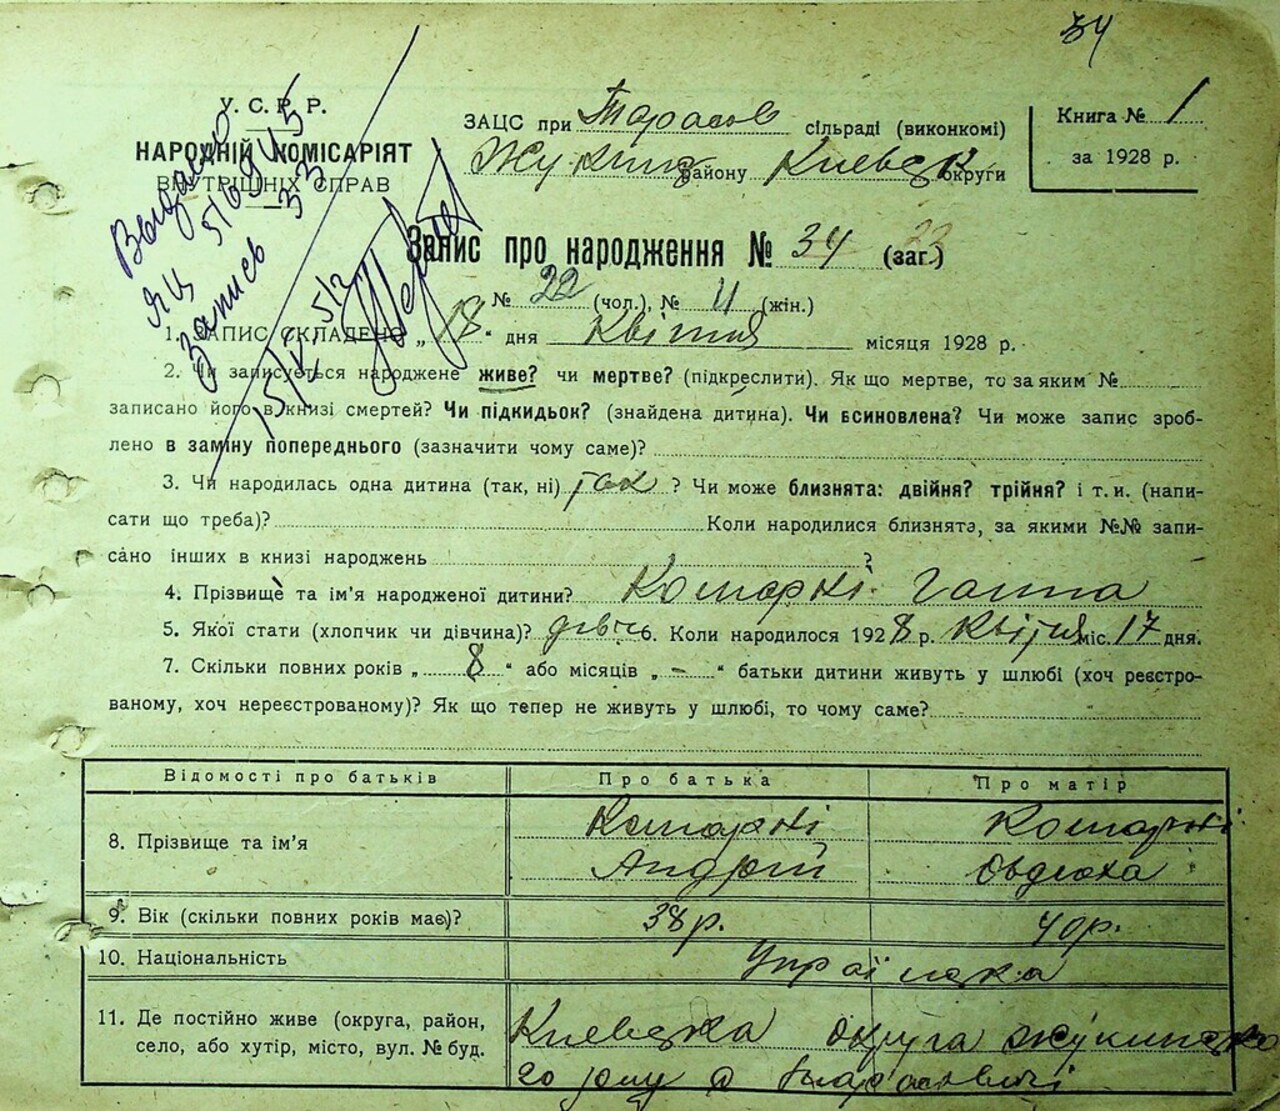 34
У. С. Р. Р.
НАРОДНІЙ КОМІСАРІЯТ
ВНУТРІШНІХ СПРАВ
ЗАЦС при Тарасов сільраді (виконкомі)
Жукин району Киевск округи
Книга № 1
за 1928 р.
Выдано
ЯЦ
Запись 33
Запис про народження № 34 (заг.)
№ 22 (чол.), № (жін.)
1. ЗАПИС СКЛАДЕНО „ 18 “ дня Квітня місяця 1928 р.
2. Чи записується народжене живе? чи мертве? (підкреслити). Як що мертве, то за яким №
записано його в книзі смертей? Чи підкидьок? (знайдена дитина). Чи всиновлена? Чи може запис зроб-
лено в заміну попереднього (зазначити чому саме)?
3. Чи народилась одна дитина (так, ні) так ? Чи може близнята: двійня? трійня? і т. и. (напи-
сати що треба)? Коли народилися близнята, за якими №№ запи-
сано інших в книзі народжень ?
4. Прізвище та ім’я народженої дитини? Ганна
5. Якої стати (хлопчик чи дівчина)? дівч. Коли народилося 1928 р. Квітня міс. 17 дня.
7. Скільки повних років „ 8 “ або місяців „ – “ батьки дитини живуть у шлюбі (хоч реєстро-
ваному, хоч нереєстрованому)? Як що тепер не живуть у шлюбі, то чому саме?
Відомості про батьків Про батька Про матір
8. Прізвище та ім’я
Андрій Овдюха
9. Вік (скільки повних років має)? 38 р. 40 р.
10. Національність Українська
11. Де постійно живе (округа, район,
село, або хутір, місто, вул. № буд.
Киевска округа Жукинско
го рну